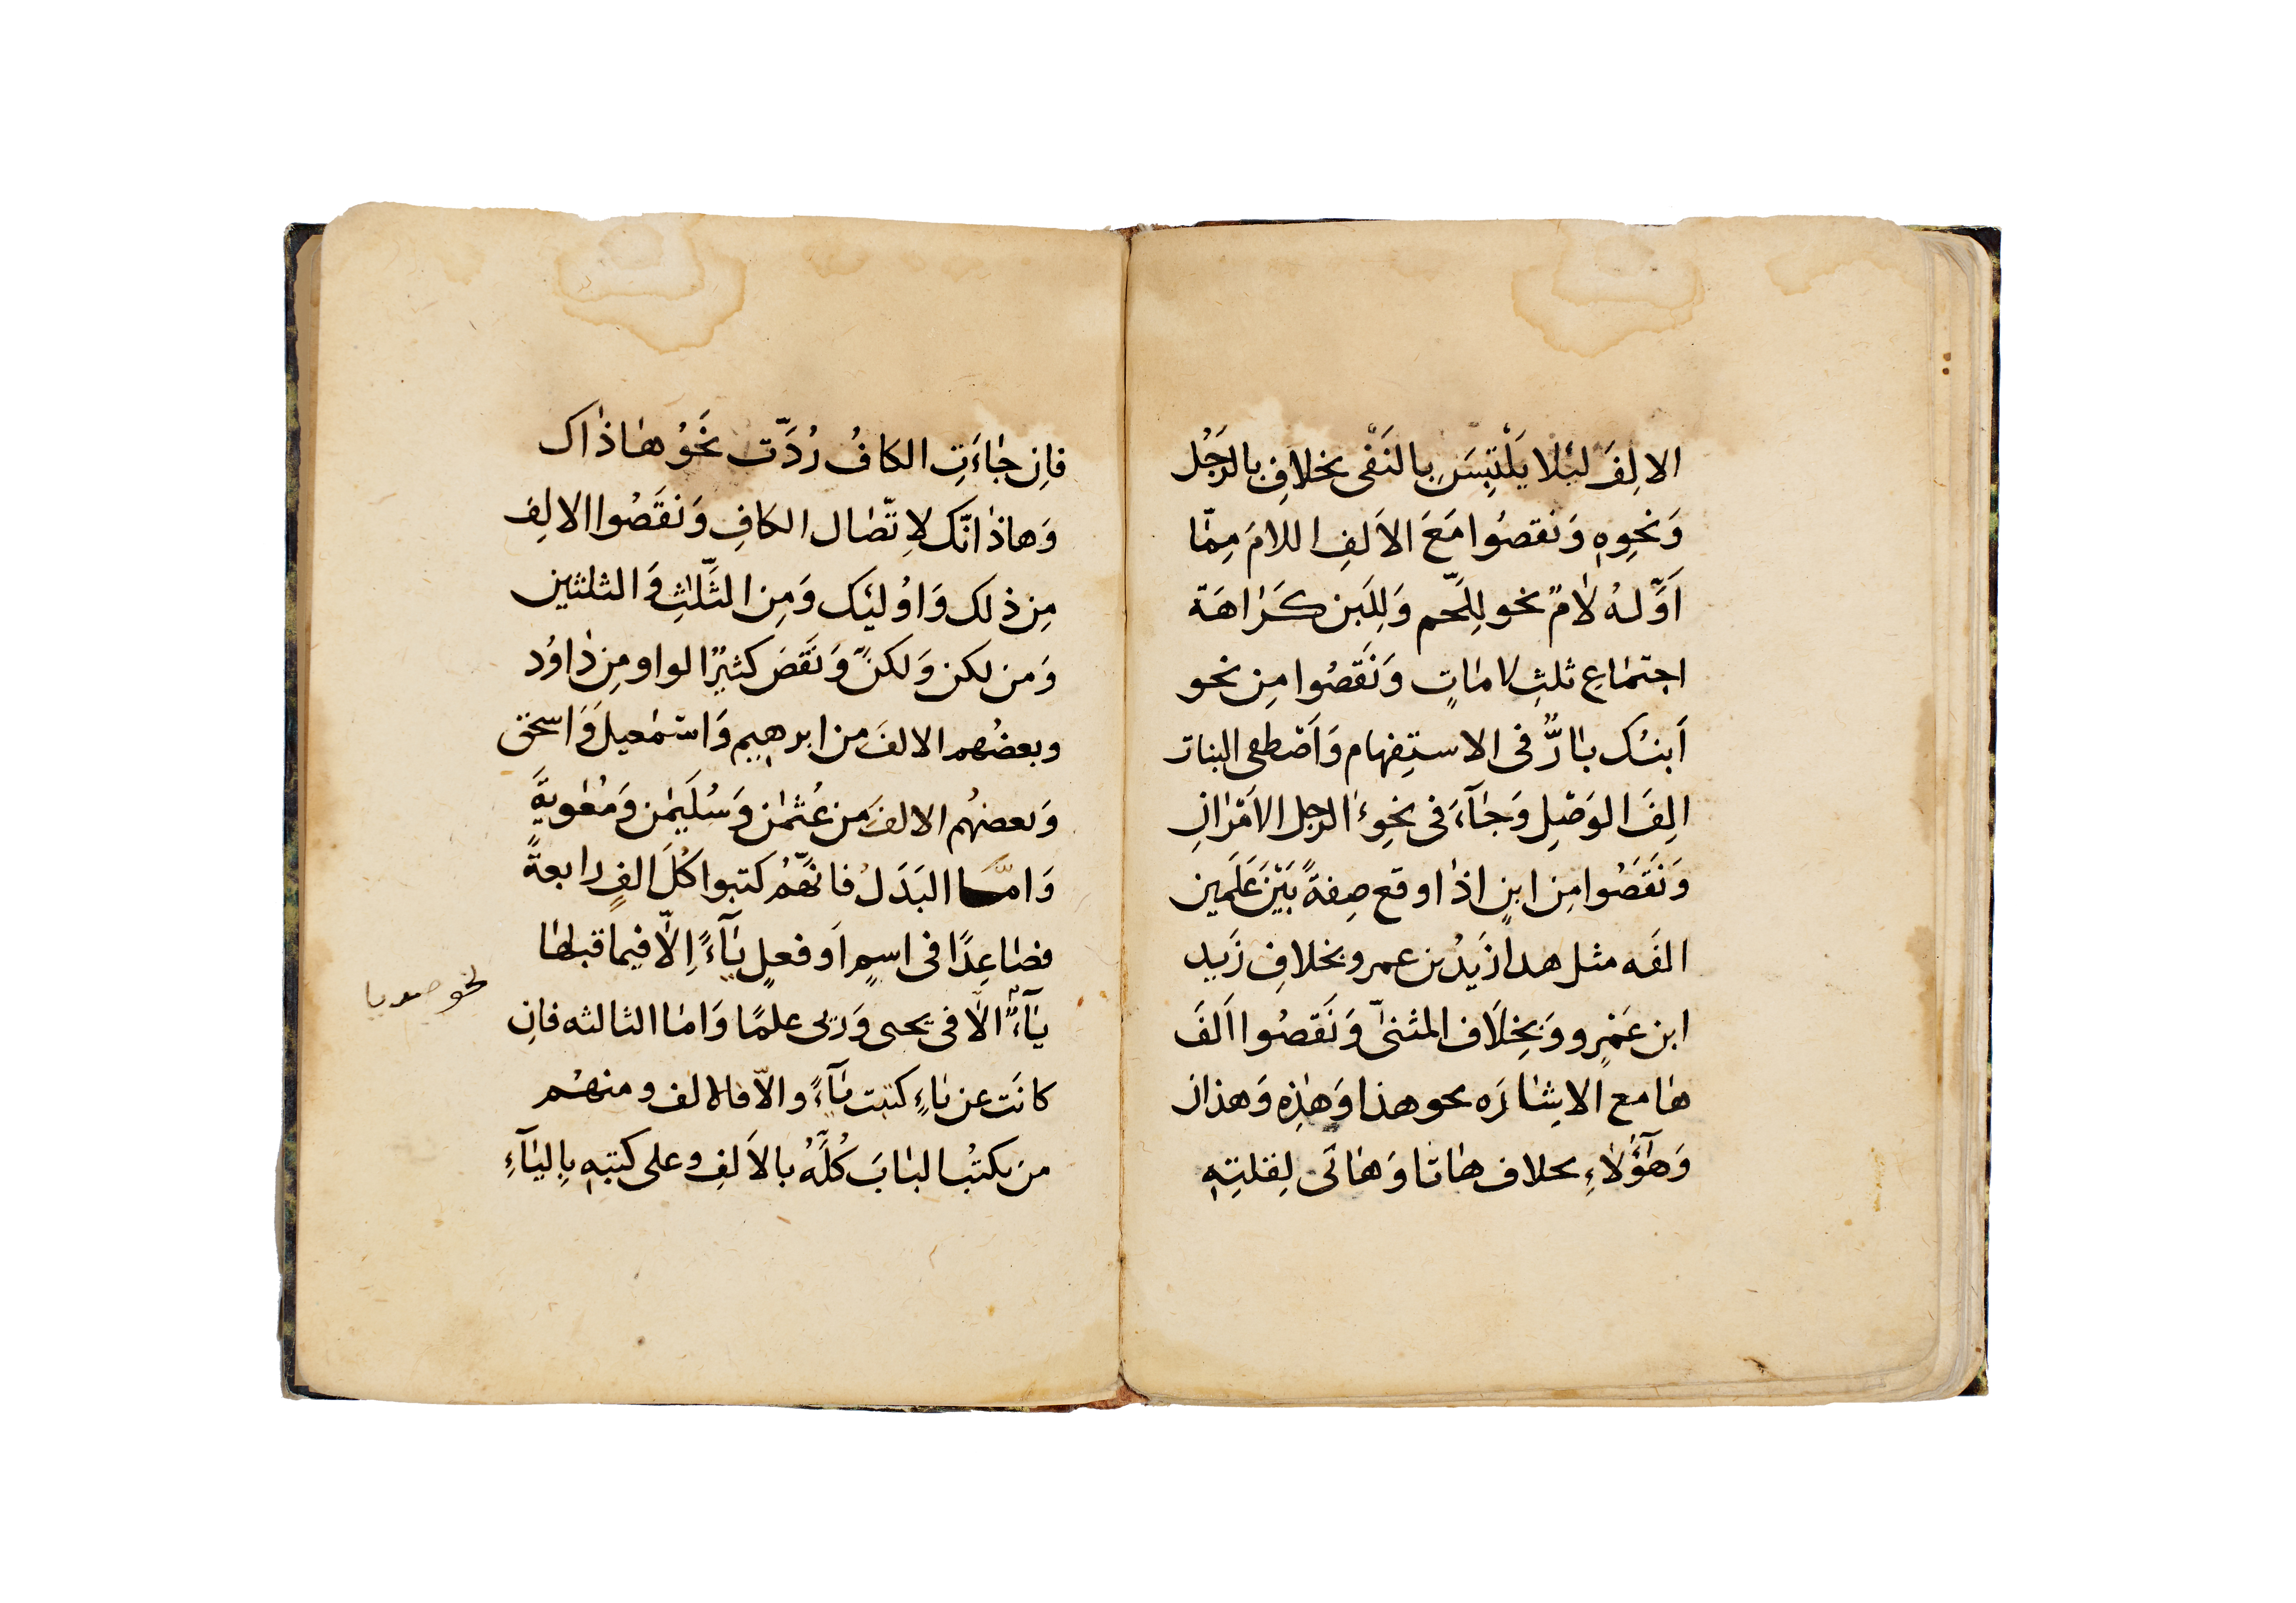 الالِفَ لئلا يَلْتبِسَ بِالنَفْى بخلافِ بالرَجُل
وَنحوِهٖ وَنَقصُوا مَعَ الاَلفِ اللامَ مِمّا
اَوَّلهُ لامٌ نحو لِلَّحم وَلِلَبن كَرَاهَة
اجتمَاعِ ثلثِ لامَاتٍ وَنَقَصُوا مِن نحو
اَبنُك بَارٌّ فى الاستِفهام وَاَصْطفى البنات
الِفَ الوَصْلِ وَجَآءَ فى نحوِ ءَالرجل الاَمْرَانِ
وَنَقَصُوا مِن ابنٍ اذا وقع صِفةً بَيْنَ عَلَمين
الفَه مثل هذا زَيدُ بن عمرو بخلافِ زَيد
ابن عَمْرٍو وَبِخِلَاف المثنىّٰ وَنَقَصُوا اَلفَ
هَا مع الاِشَارَه نحو هذا وَهٰذِهِ وَهذان
وَهٰٓؤُلاءِ بخلاف هَاتا وَهَاتَى لِقلتِهٖ
فاِن جَاءَتِ الكافُ رُدَّت نَحْوُ هاذاك
وَهاذانّك لاِتّصَال الكافِ وَنقَصُوا الالِف
مِن ذلك وَاوُلئِك وَمِن الثَّلٰثِ وَالثلثين
وَمن لكن وَلكنَّ وَنَقَصَ كثيرٌ الواو مِن دَاوُد
وبعضُهم الالفَ من ابرهِيم وَاسْمٰعيلَ وَاسحٰق
وَبعضهُم الالفَ من عُثمٰن وَسُلَيمٰن وَمُعٰويَةَ
وَامَّا البَدَلُ فانّهمُ كتبوا كُلَ الفٍ رابعةً
فصَاعِدًا فى اسمٍ اَو فعلٍ يَآءً اِلاّ فيما قبلها
يَآءٌ الاّ فى يحيى وَرَيى علمًا وَامَا الثالثه فاِن
كانَت عن يَاءٍ كتبت يَآءً والاّ فالالف ومنهُم
من يكتبُ البَابَ كُلَّهُ بالاَلفِ وعلى كتبِهٖ بِاليَآءِ
نحو صديا